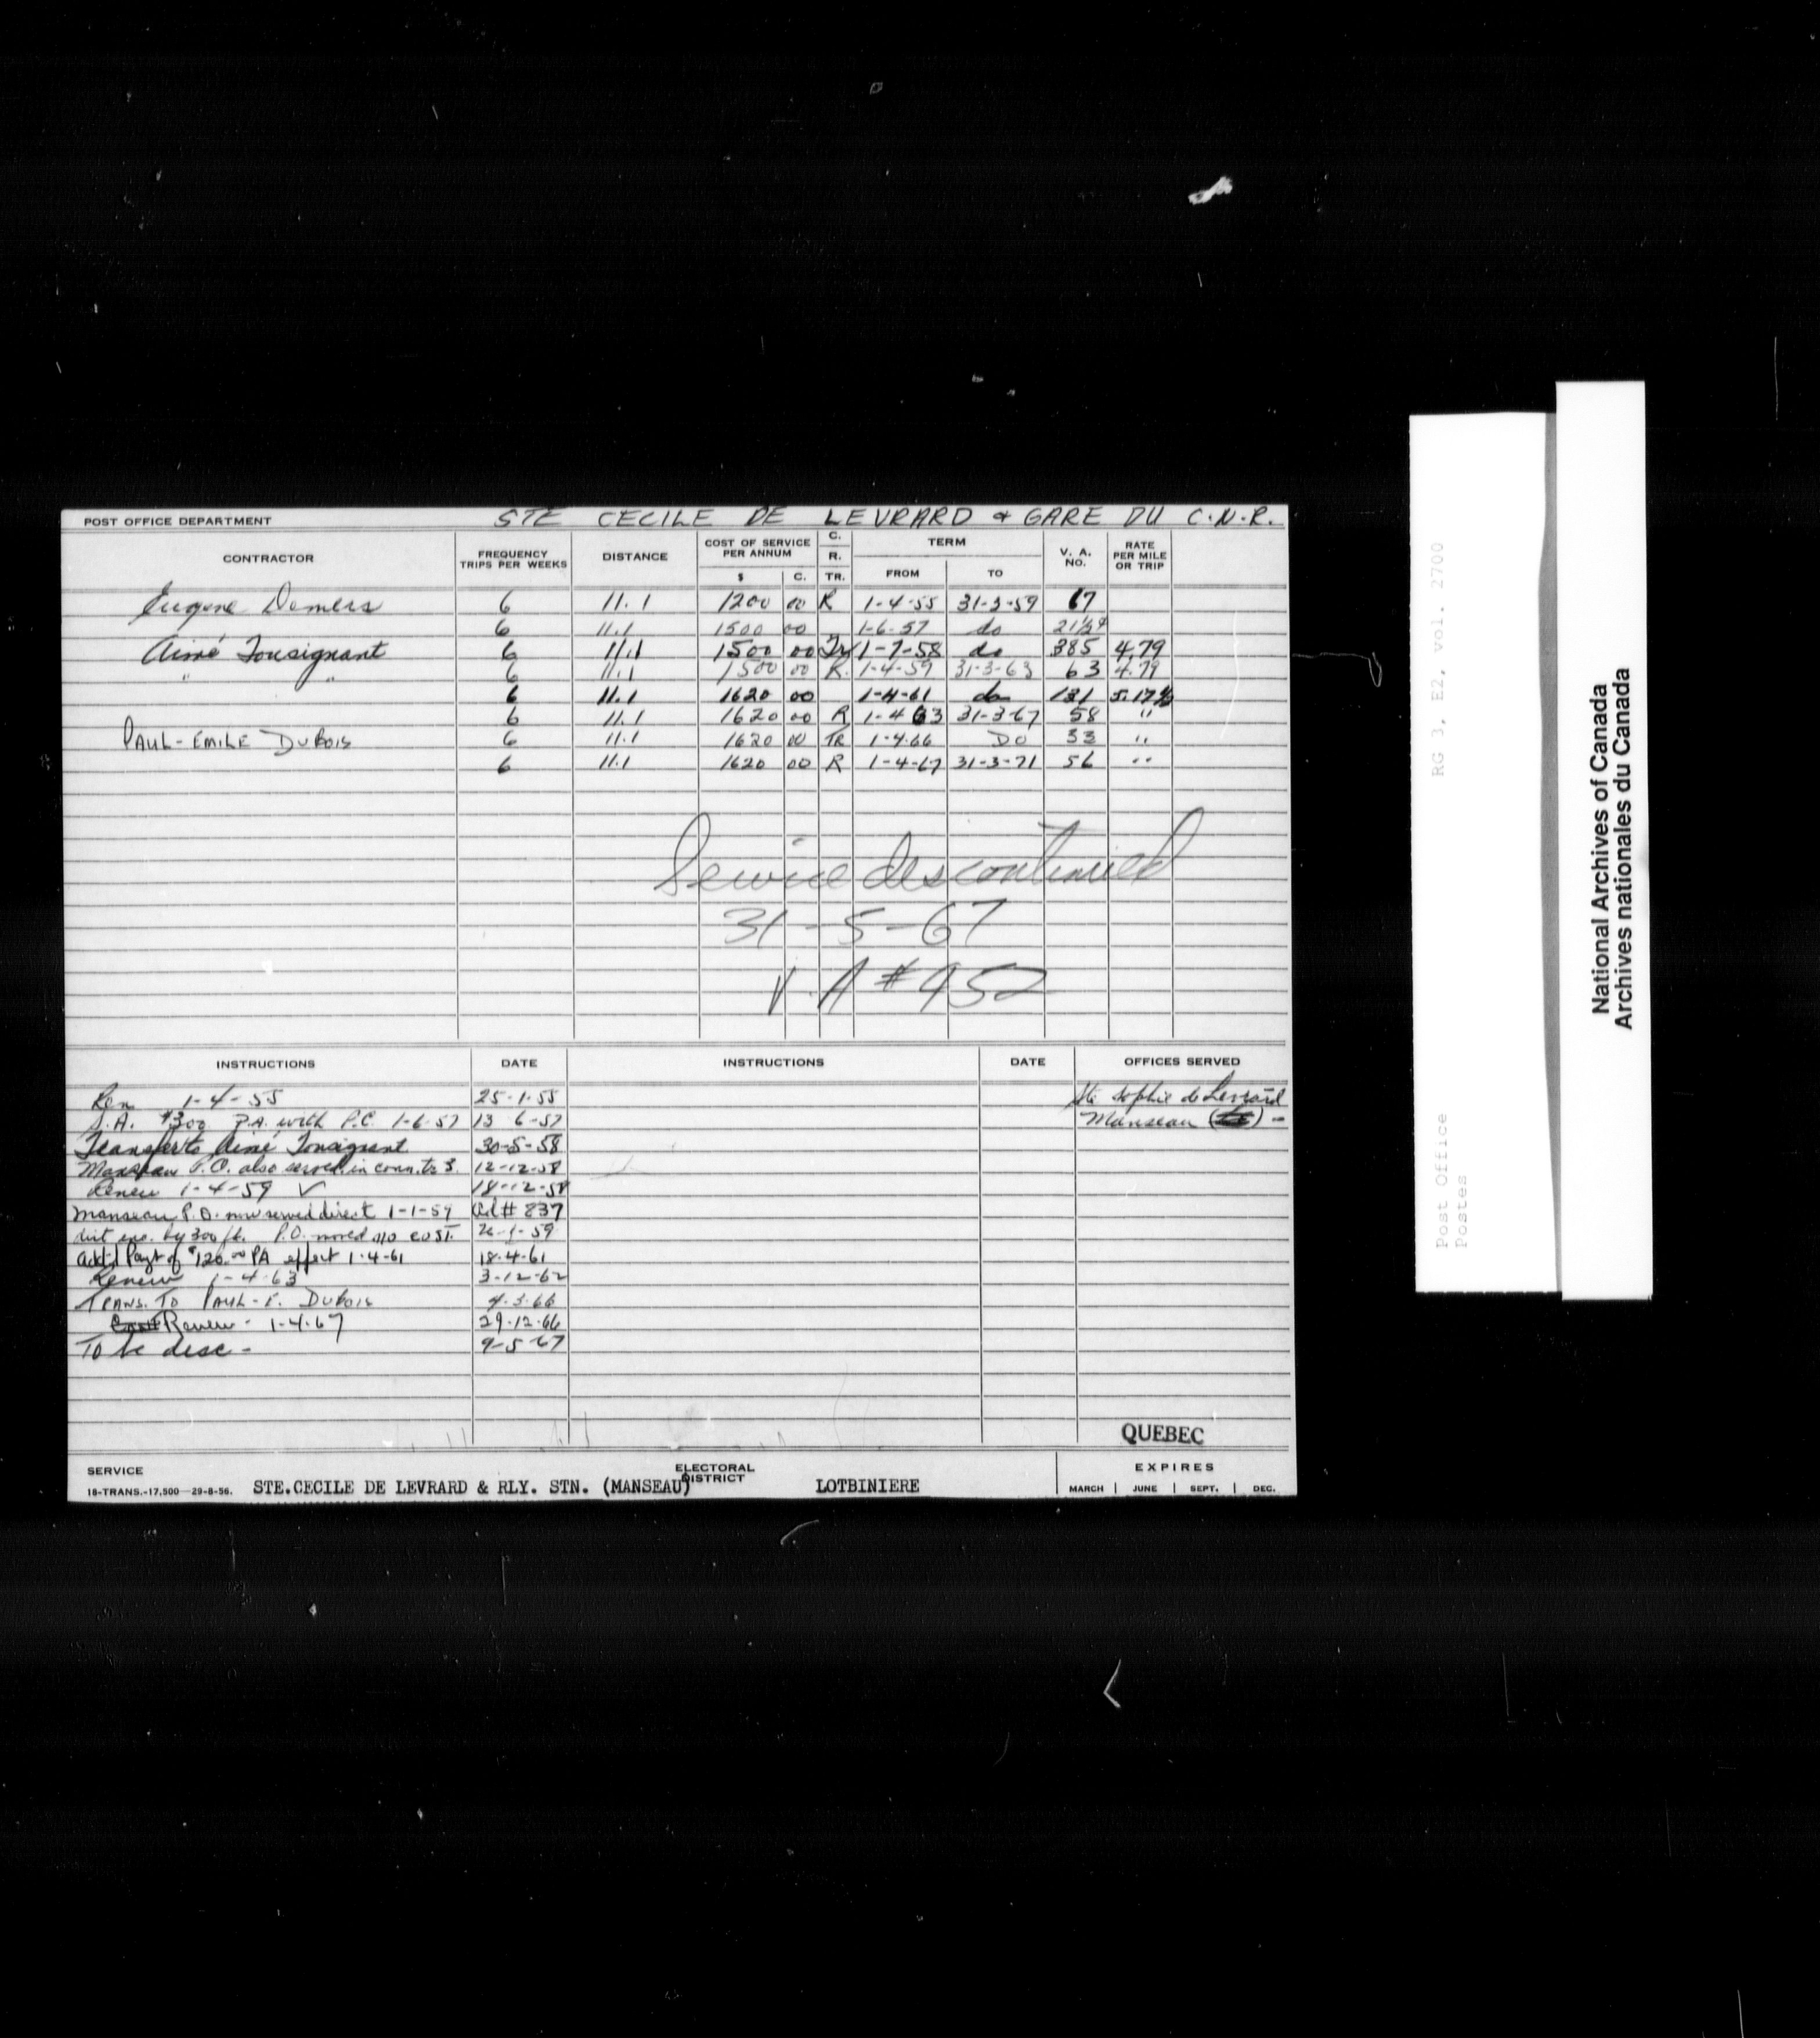 POST OFFICE DEPARTMENT STE CECILE DE LEVRARD & GARE DU C.N.R.
CONTRACTOR FREQUENCY TRIPS PER WEEKS DISTANCE COST OF SERVICE PER ANNUM $ C. C. R. TR. TERM FROM TO V. A. NO. RATE PER MILE OR TRIP
Eugene Demers 6 11.1 1200 00 R 1-4-55 31-3-59 67
6 11.1 1500 00 1-6-57 do
Aimé Tousignant 6 11.1 1500 00 Tr 1-7-58 do 385 4.79
" " 6 11.1 1500 00 R. 1-4-59 31-3-63 63 4.79
6 11.1 1620 00 1-4-61 do 131
6 11.1 1620 00 R 1-4 63 31-3-67 58 "
PAUL-EMILE DUBOIS 6 11.1 1620 00 TR 1-4-66 DO 33 "
6 11.1 1620 00 R 1-4-67 31-3-71 56 "
Service discontinued
31-5-67
V.A # 952
INSTRUCTIONS DATE INSTRUCTIONS DATE OFFICES SERVED
Ren 1-4-55 25-1-55 Ste Sophie de Levrard
S.A. $300 P.A. with P.C. 1-6-57 13 6-57 Manseau
Transfer to Aimé Tousignant 30-5-58
Manseau P.O. also served in conn. to 12-12-58
Renew 1-4-59 ✓ 18-12-58
Manseau P.O. now served direct 1-1-59 Ad # 837
dist inc. by 300 ft. P.O. moved no cost. 26-1-59
Add'l Payt of $120.00 PA effect 1-4-61 18-4-61
Renew 1-4-63 3-12-62
TRANS. TO PAUL-E. DUBOIS 4-3-66
Renew - 1-4-67 29-12-66
To be disc - 9-5-67
QUEBEC
SERVICE STE.CECILE DE LEVRARD & RLY. STN. (MANSEAU) ELECTORAL DISTRICT LOTBINIERE EXPIRES
18-TRANS.-17,500—29-8-56. MARCH | JUNE | SEPT. | DEC.
RG 3, E2, vol. 2700
Post Office
Postes
National Archives of Canada
Archives nationales du Canada